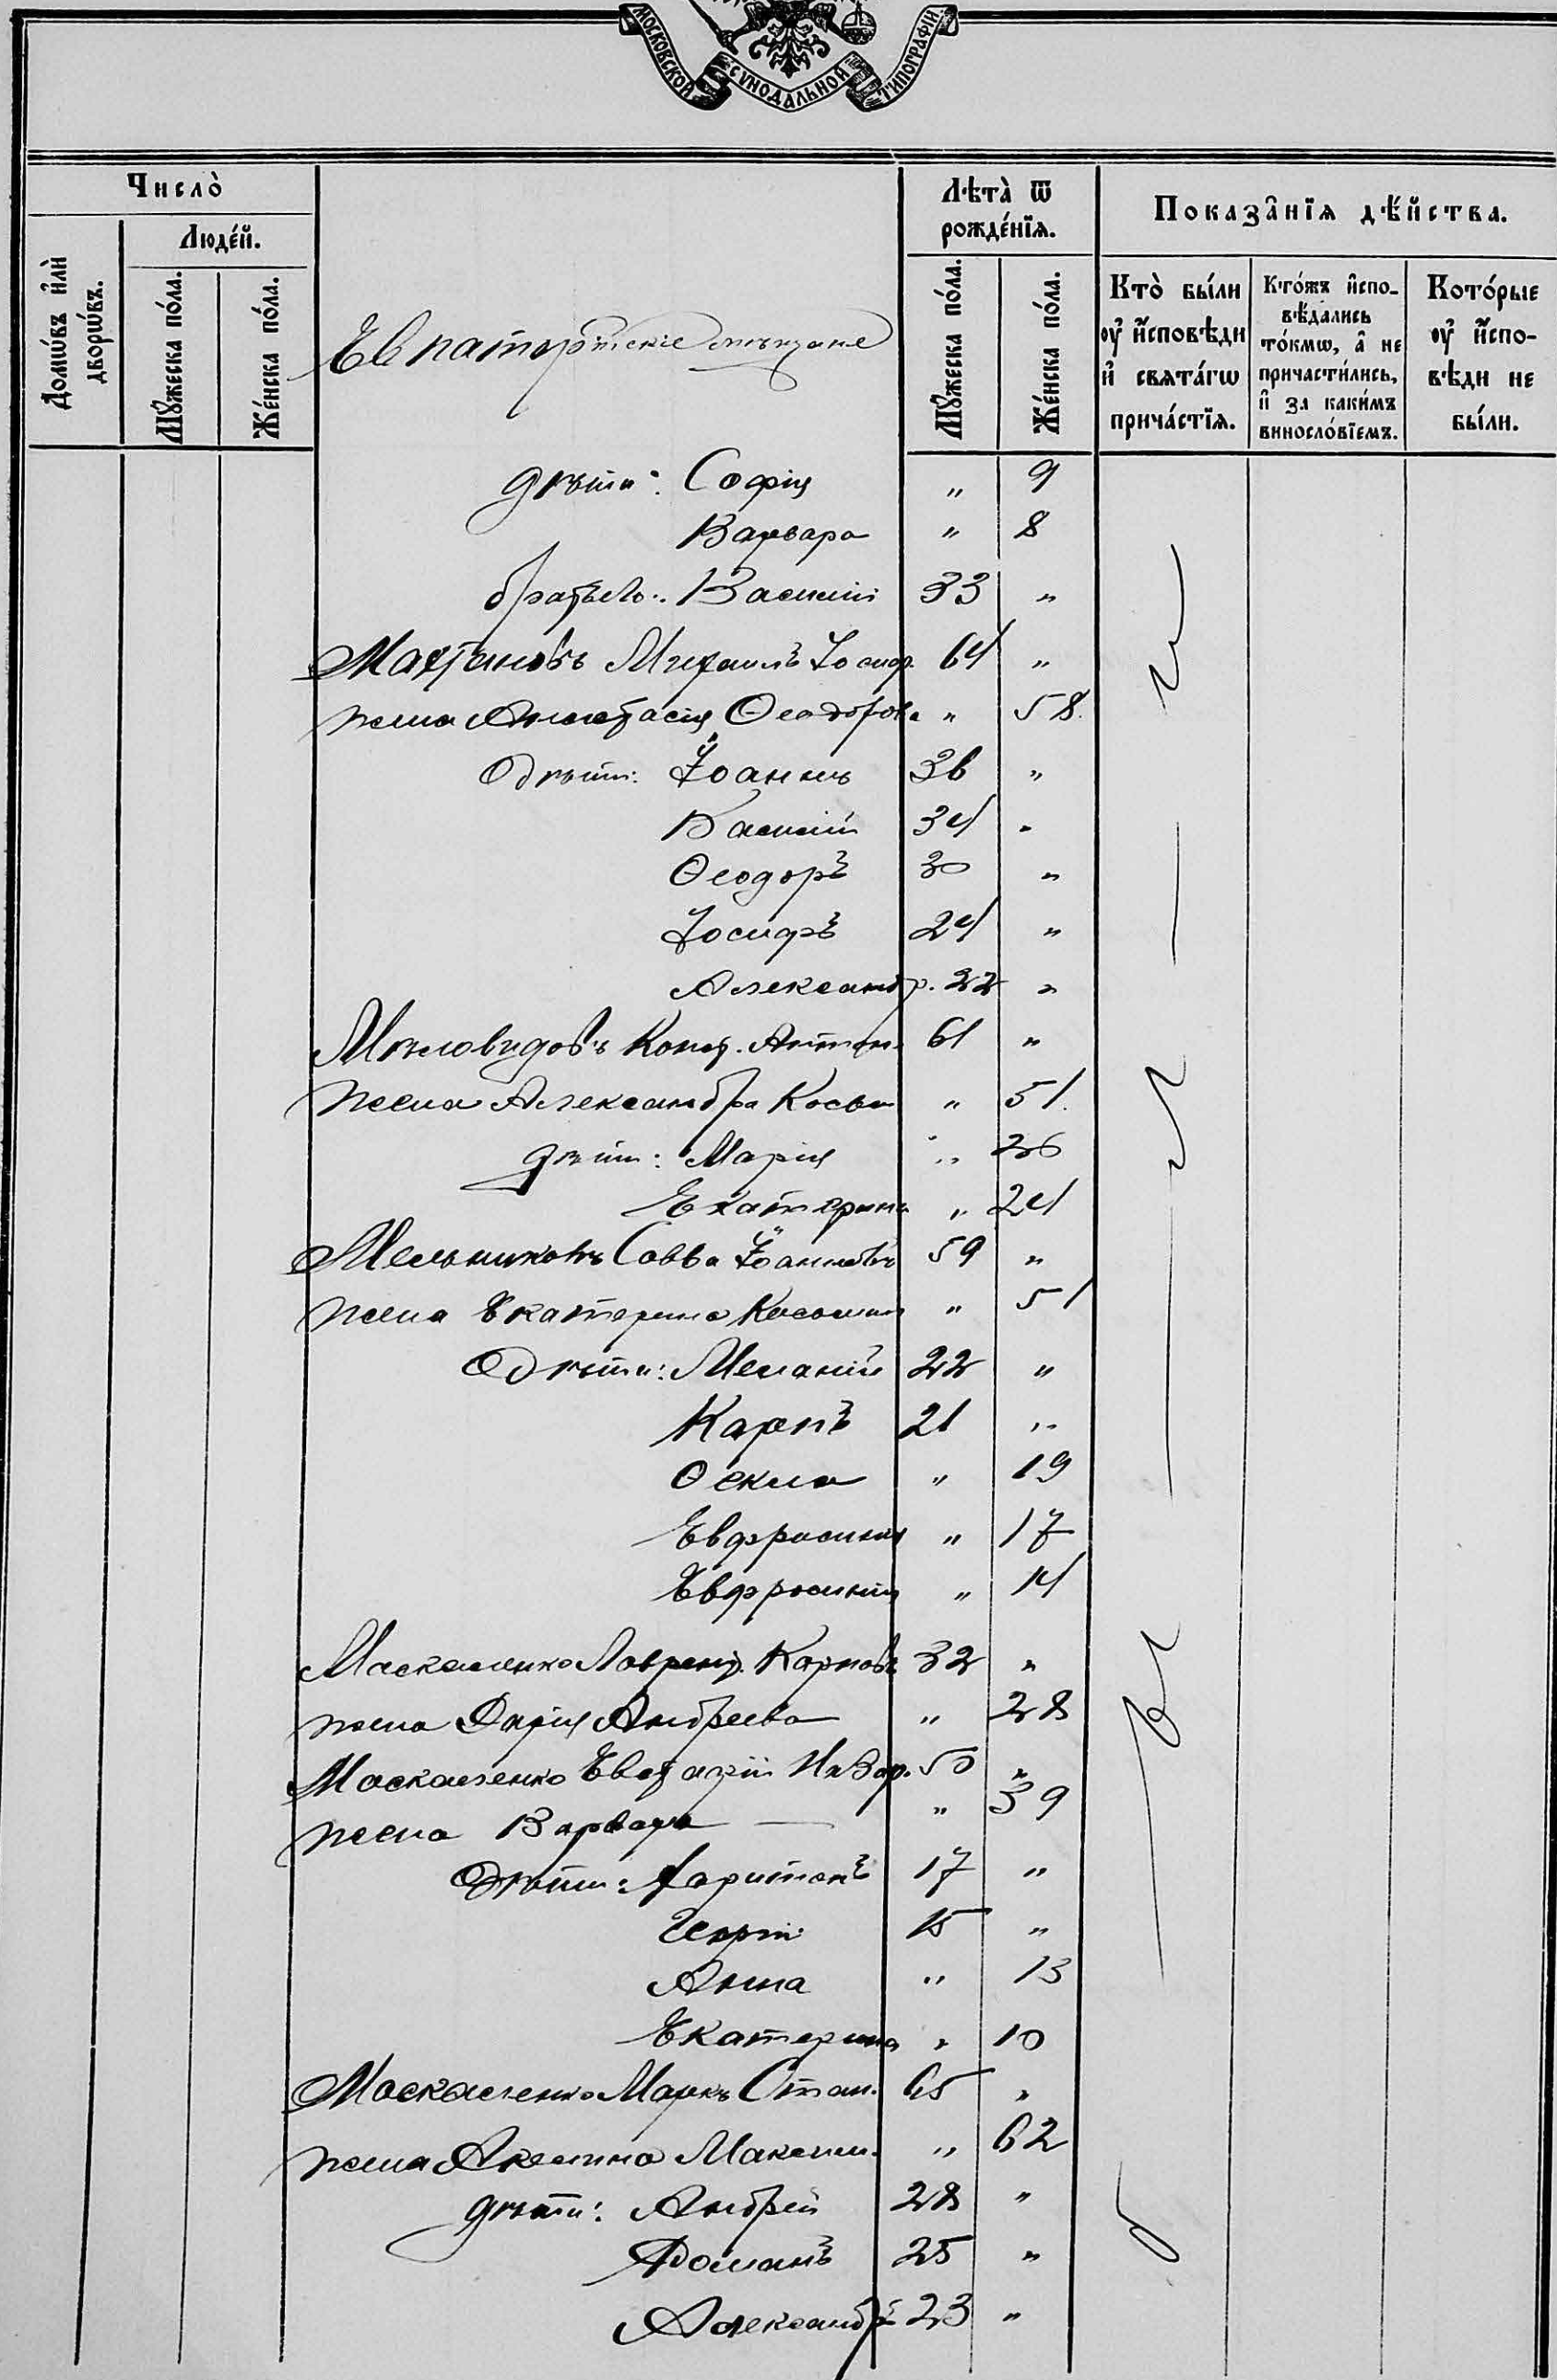 МОСКОВСКОЙ СѴНОДАЛЬНОЙ ТИПОГРАФІИ
Число̀
Людéй.
Домѡ́въ и҆лѝ дворѡ́въ.
Мꙋ́жеска по́ла.
Же́нска по́ла.
Лѣта̀ ѿ рожде́нїѧ.
Мꙋ́жеска по́ла.
Же́нска по́ла.
Показа̑нїѧ дѣ́йства.
Кто̀ бы́ли ᲂу҆ и҆сповѣди и҆ свѧта́гѡ прича́стїѧ.
Кто́жъ и҆сповѣ́дались то́кмѡ, а҆ не причасти́лись, и҆ за каки́мъ виносло́вїемъ.
Кото́рые ᲂу҆ и҆сповѣди не бы́ли.
Евпаторійскіе мѣщане
дѣти: Софія " 9
Варвара " 8
братъ его: Василій 33 "
Михаилъ Іосиф. 64 "
жена Анастасія Ѳеодоров. " 58.
дѣти: Іоаннъ 36 "
Василій 34 "
Ѳеодоръ 30 "
Іосифъ 24 "
Александр. 22 "
Миловидовъ Конст. Антон. 61 "
жена Александра Косьм " 51.
дѣти: Марія " 26
Екатерина " 24
Мельниковъ Савва Іоанновъ 59 "
жена Екатерина " 51
дѣти: 22 "
Карпъ 21 "
Ѳекла " 19
Евфросинія " 17
Евфросинія " 14
Маскаленко Лаврент. Карповъ 32 "
жена Дарія Андреева " 28
Маскаленко Евстафій 50 "
жена Варвара — " 39
дѣти: Харитонъ 17 "
Георгій 15 "
Анна " 13
Екатерина " 10
Маскаленко Маркъ Стан. 65 "
жена Акелина Максим. " 62
дѣти: Андрей 28 "
Романъ 25 "
Александръ 23 "